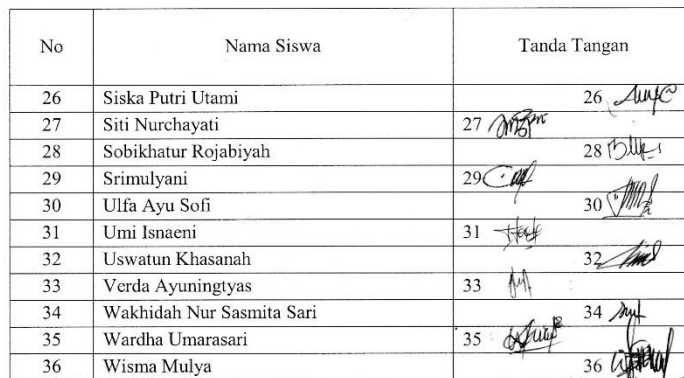 No Nama Siswa Tanda Tangan
26 Siska Putri Utami 26
27 Siti Nurchayati 27
28 Sobikhatur Rojabiyah 28
29 Srimulyani 29
30 Ulfa Ayu Sofi 30
31 Umi Isnaeni 31
32 Uswatun Khasanah 32
33 Verda Ayuningtyas 33
34 Wakhidah Nur Sasmita Sari 34
35 Wardha Umarasari 35
36 Wisma Mulya 36